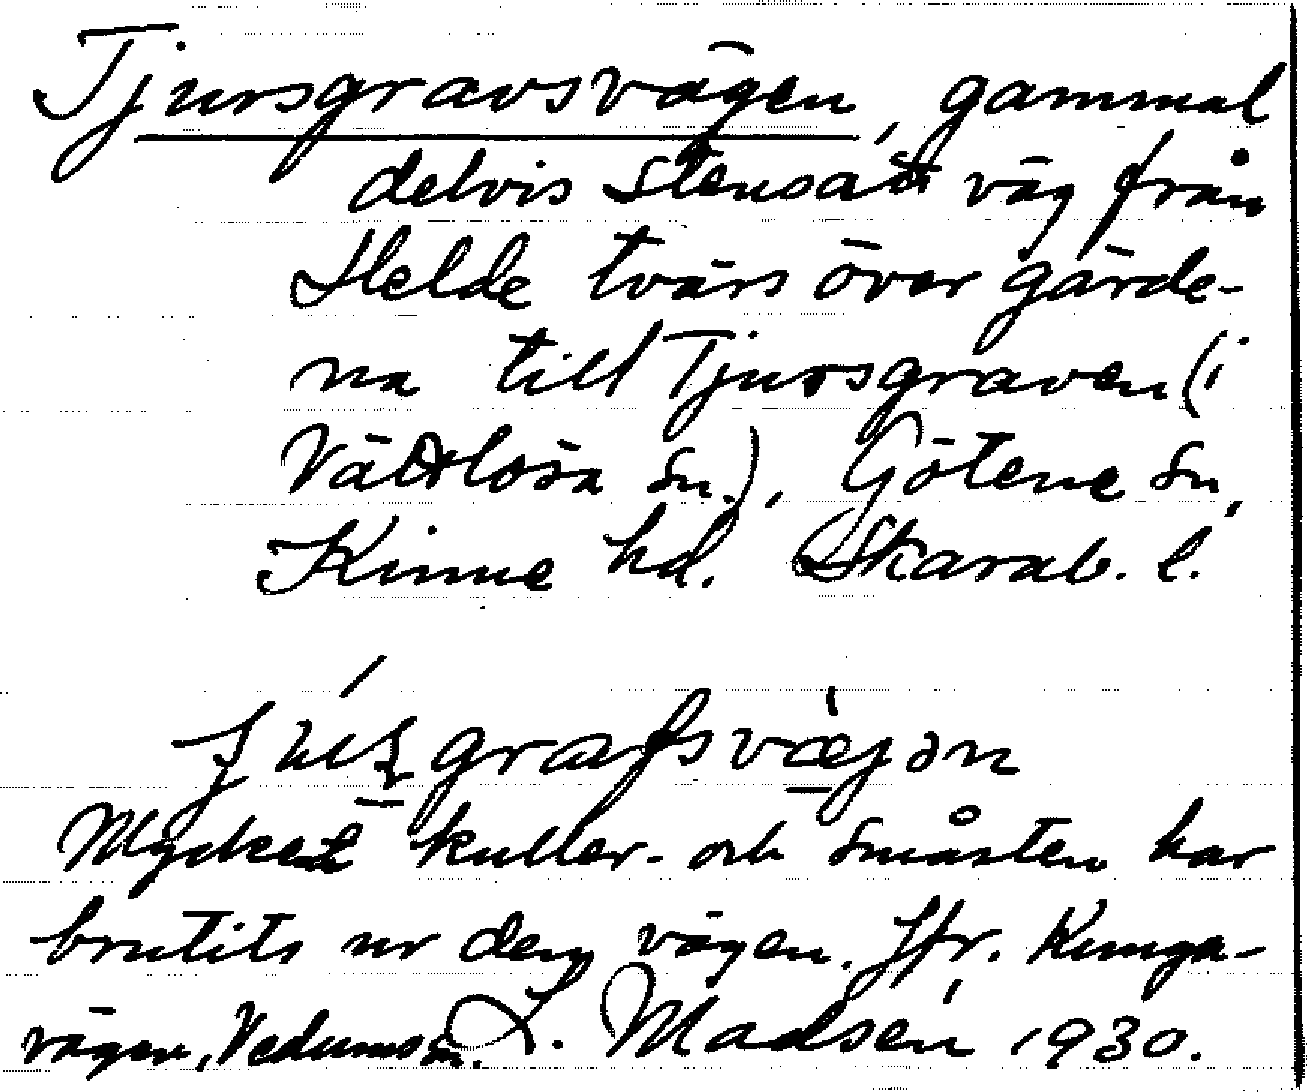 Tjursgravsvägen, gammal
delvis stensatt väg från
Helde tvärs över gärde-
na till Tjursgraven (i
Vättlösa sn.), Götene sn,
Kinne hd. Skarab. l.
Mycket kuller- och småsten har
brutits ur den vägen. Jfr. Kunga-
vägen, Vedums sn. L. Madsén 1930.